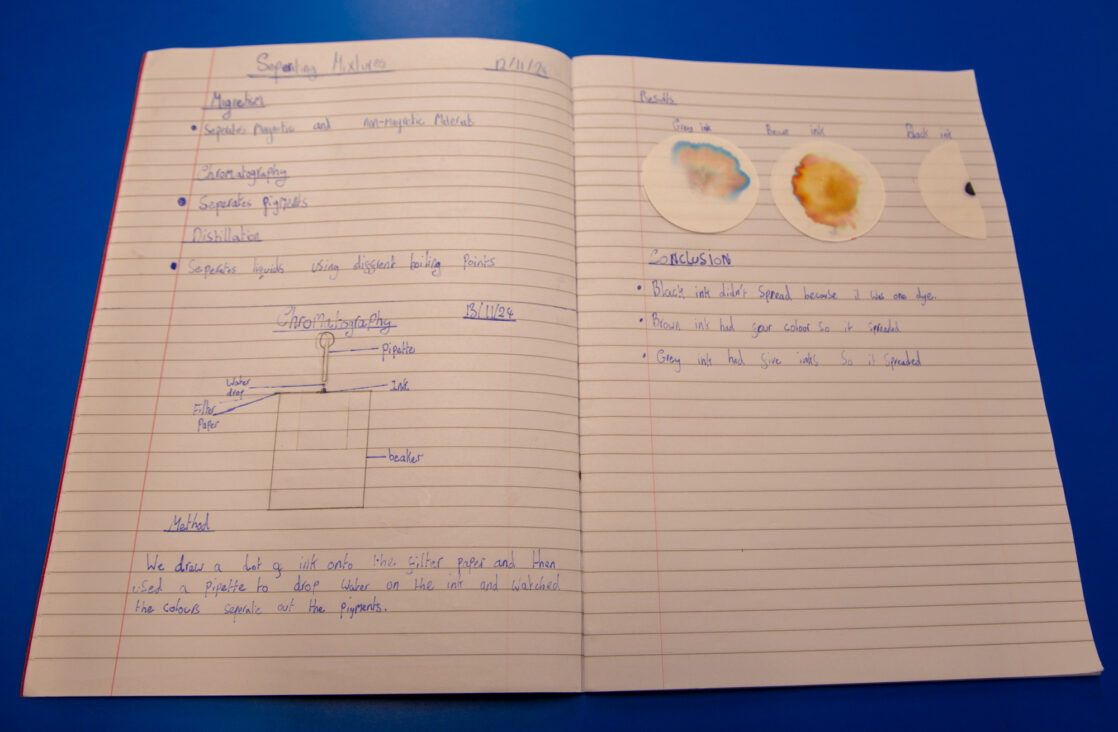 Seperating Mixtures 12/11/24
Magnetism
• Seperates Magnetic and non-Magnetic Materials
Chromatography
• Seperates pigments
Distillation
• Seperates liquids using different boiling Points
Chromatography 13/11/24
Pipette
Water
drop
Ink
Filter
Paper
beaker
Method
We drew a dot of ink onto the filter paper and then
used a pipette to drop water on the ink and watched
the colours seperate out the pigments.
Results
Grey ink Brown ink Black ink
Conclusion
• Black ink didn't Spread because it was one dye.
• Brown ink had four colour So it spreaded
• Grey ink had five inks So it Spreaded